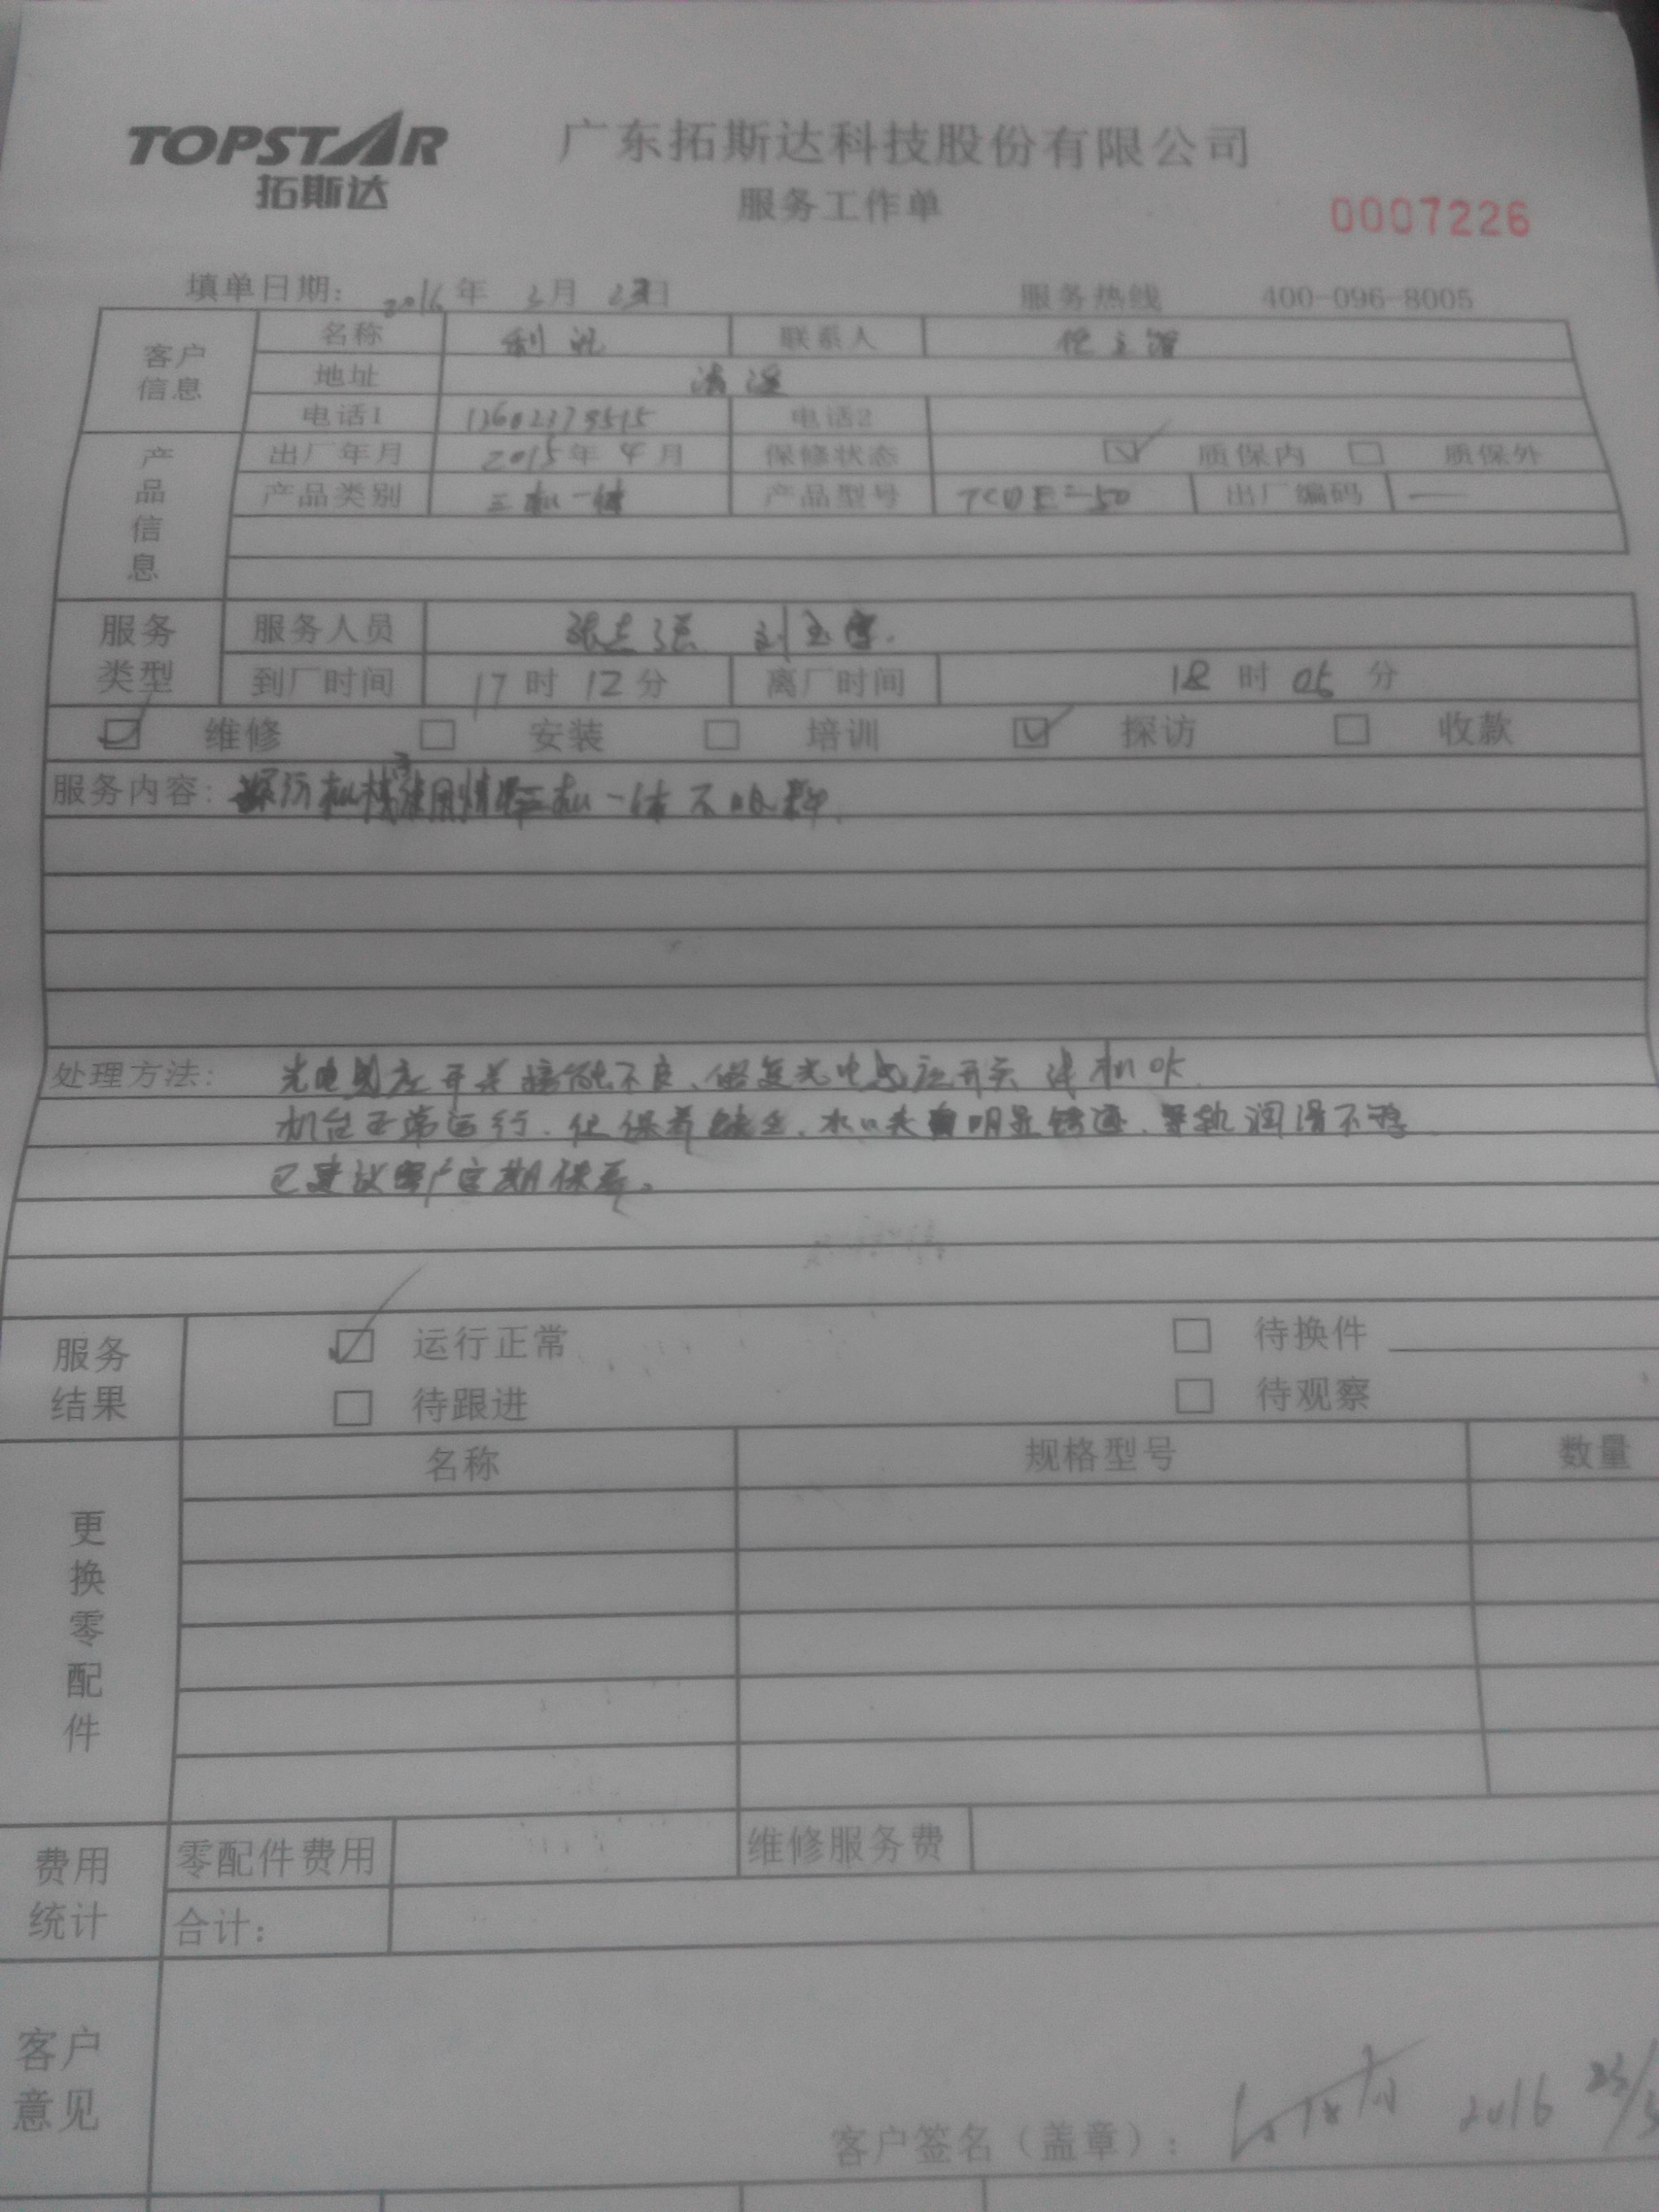 TOPSTAR
拓斯达
广东拓斯达科技股份有限公司
服务工作单
0007226
填单日期: 2016年 3月 23日 服务热线 400-096-8005
客户信息
名称 利 联系人 主管
地址 清远
电话1 电话2
产品信息
出厂年月 2015年 4月 保修状态 质保内 质保外
产品类别 三机一体 产品型号 出厂编码 —
服务类型
服务人员 张志强 刘
到厂时间 17时 12分 离厂时间 18时 05分
维修 安装 培训 探访 收款
服务内容: 三机一体不吸料.
处理方法: 光电感应开关接触不良、修复光电感应开关 试机OK.
机台正常运行. 但保养缺乏. 水口夹有明显锈迹. 导轨润滑不够
已建议客户定期保养。
服务结果
运行正常 待换件
待跟进 待观察
更换零配件
名称 规格型号 数量
费用统计
零配件费用 维修服务费
合计:
客户意见
客户签名（盖章）: 2016 23/3